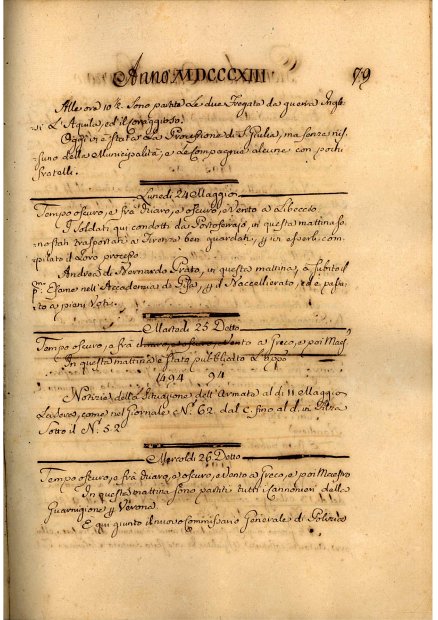 Anno MDCCCXIII 79
Alle ore 10½ Sono partite Le due Fregate da guerra Ingle-
si L'Aquila, ed il
Oggi vi è stata La Procesione di S. Giulia, ma senza nis-
suno della Municipalità; e Le Compagnie alcune con pochi
fratelli.
Lunedì 24 Maggio
Tempo oscuro, e frà Duaro, e oscuro, e Vento a Libeccio
I Soldati qui condotti da Portoferraio, in questa mattina so-
no stati trasportati a Firenze ben guardati, p in esserli com-
pilato il Loro processo
Andrea di Bernardo Prato, in questa mattina, à subito il
p.mo Esame nell'Accademia di Pisa, p il Baccellierato, ed è pasa-
to a pieni Voti.
Martedì 25 Detto
Tempo oscuro, e frà duaro, e oscuro, Vento a Greco, e poi Maes.
In questa mattina è stato pubblicato L'
1494 94
Notizie della Situazione dell'Armata al dì 11 Maggio
come nel Giornale N.º 62. dal C. fino al d. in
Sotto il N.º 52
Mercoldì 26 Detto
Tempo oscuro, e frà Duaro, e oscuro, e Vento a Greco, e poi Maestro
In questa mattina sono partiti tutti i Cannonieri della
Guarnigione p Verona.
E qui giunto il nuovo Commissario Generale di Polizia